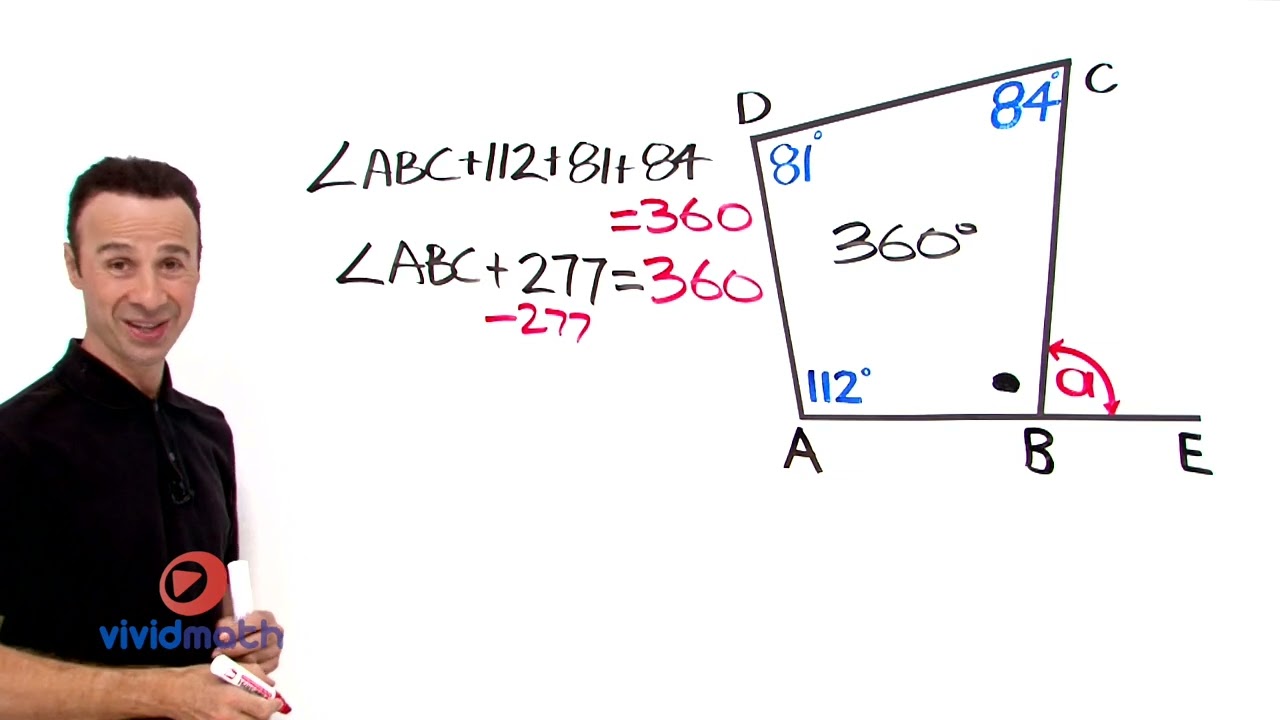 ∠ABC+112+81+84
=360
∠ABC+277=360
-277
D
C
84°
81°
360°
112°
a
A
B
E
vividmath